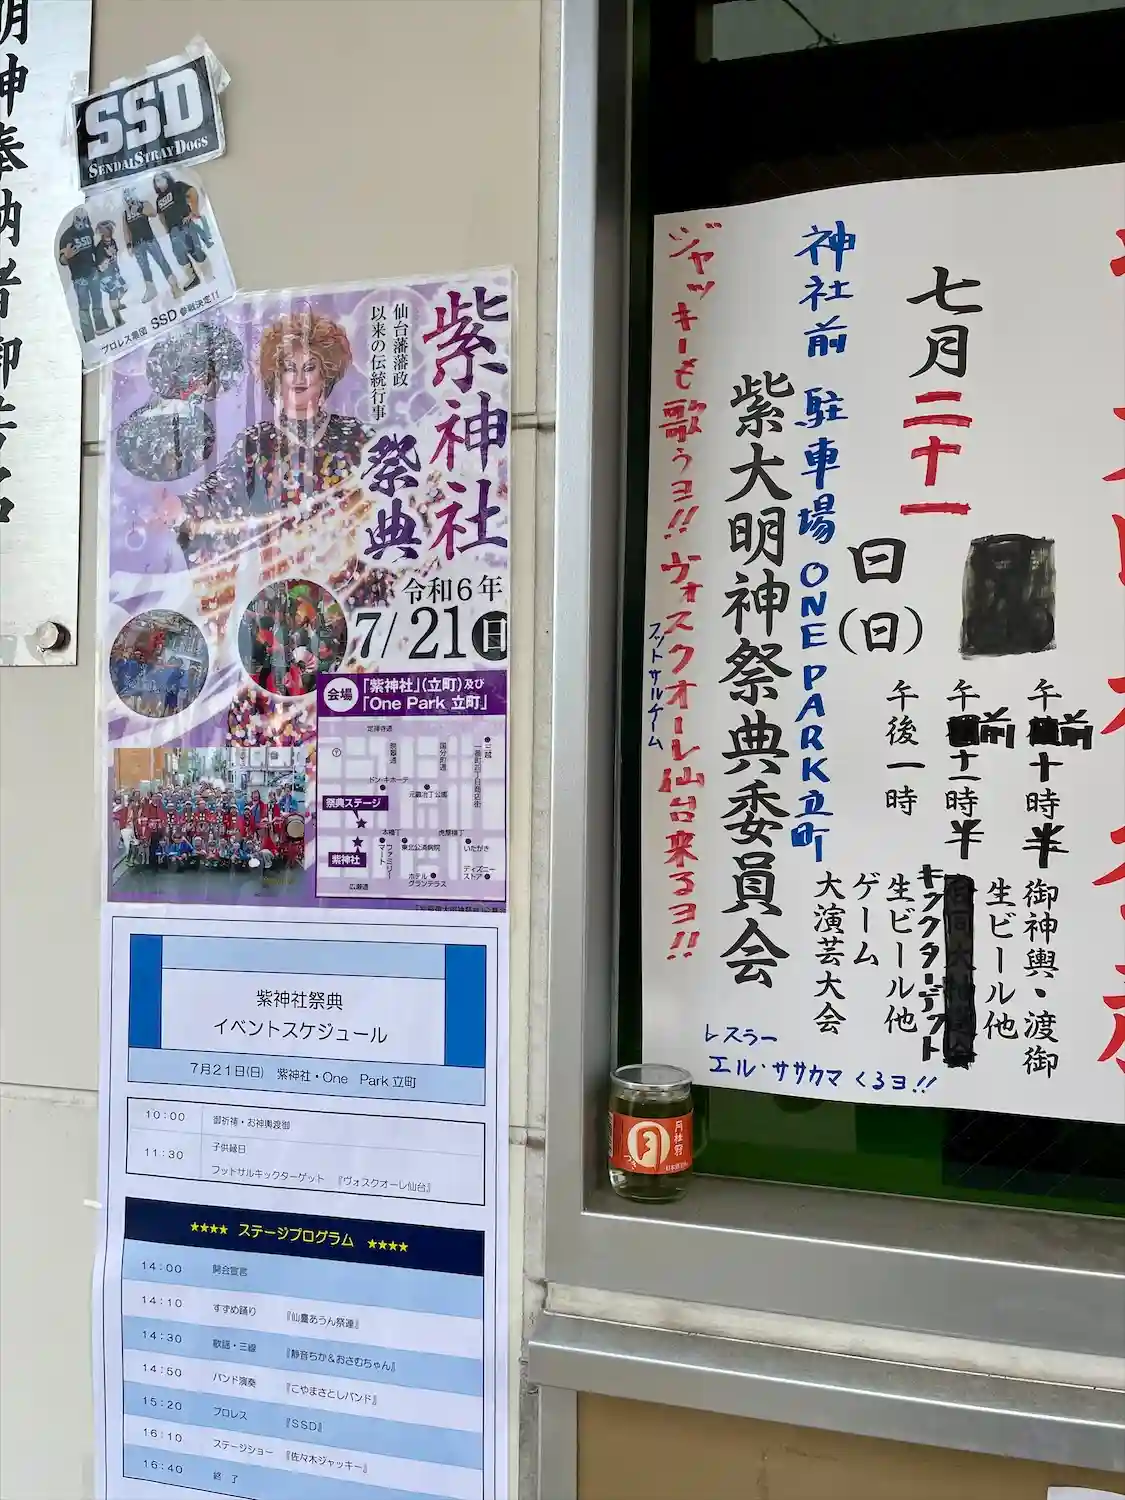 明神奉納者御芳名
SSD
SENDAI STRAY DOGS
プロレス集団 SSD 参戦決定!!
紫神社
祭典
仙台藩藩政
以来の伝統行事
令和6年
7/21日
会場
「紫神社」(立町)及び
「One Park 立町」
定禅寺通
三越
一番町四丁目商店街
国分町通
ドン・キホーテ
元鍛冶丁公園
祭典ステージ
本櫓丁
虎屋横丁
ファミリーマート
東北公済病院
いたがき
紫神社
ホテル
グランテラス
ディズニー
ストア
広瀬通
紫神社祭典
イベントスケジュール
7月21日(日) 紫神社・One Park 立町
10:00 御祈祷・お神輿渡御
11:30 子供縁日
フットサルキックターゲット 『ヴォスクオーレ仙台』
★★★★ ステージプログラム ★★★★
14:00 開会宣言
14:10 すずめ踊り 『仙臺あうん祭連』
14:30 歌謡・三線 『静音ちか&おさむちゃん』
14:50 バンド演奏 『こやまさとしバンド』
15:20 プロレス 『SSD』
16:10 ステージショー 『佐々木ジャッキー』
16:40 終 了
七月二十一日(日)
午前十時半 御神輿・渡御
生ビール他
午前十一時半 キックターゲット
生ビール他
午後一時 ゲーム
大演芸大会
神社前 駐車場 ONE PARK 立町
紫大明神祭典委員会
ジャッキーも歌うヨ!!ヴォスクオーレ仙台来るヨ!!
フットサルゲーム
レスラー
エル・ササカマ くるヨ!!
月桂冠
月
つき